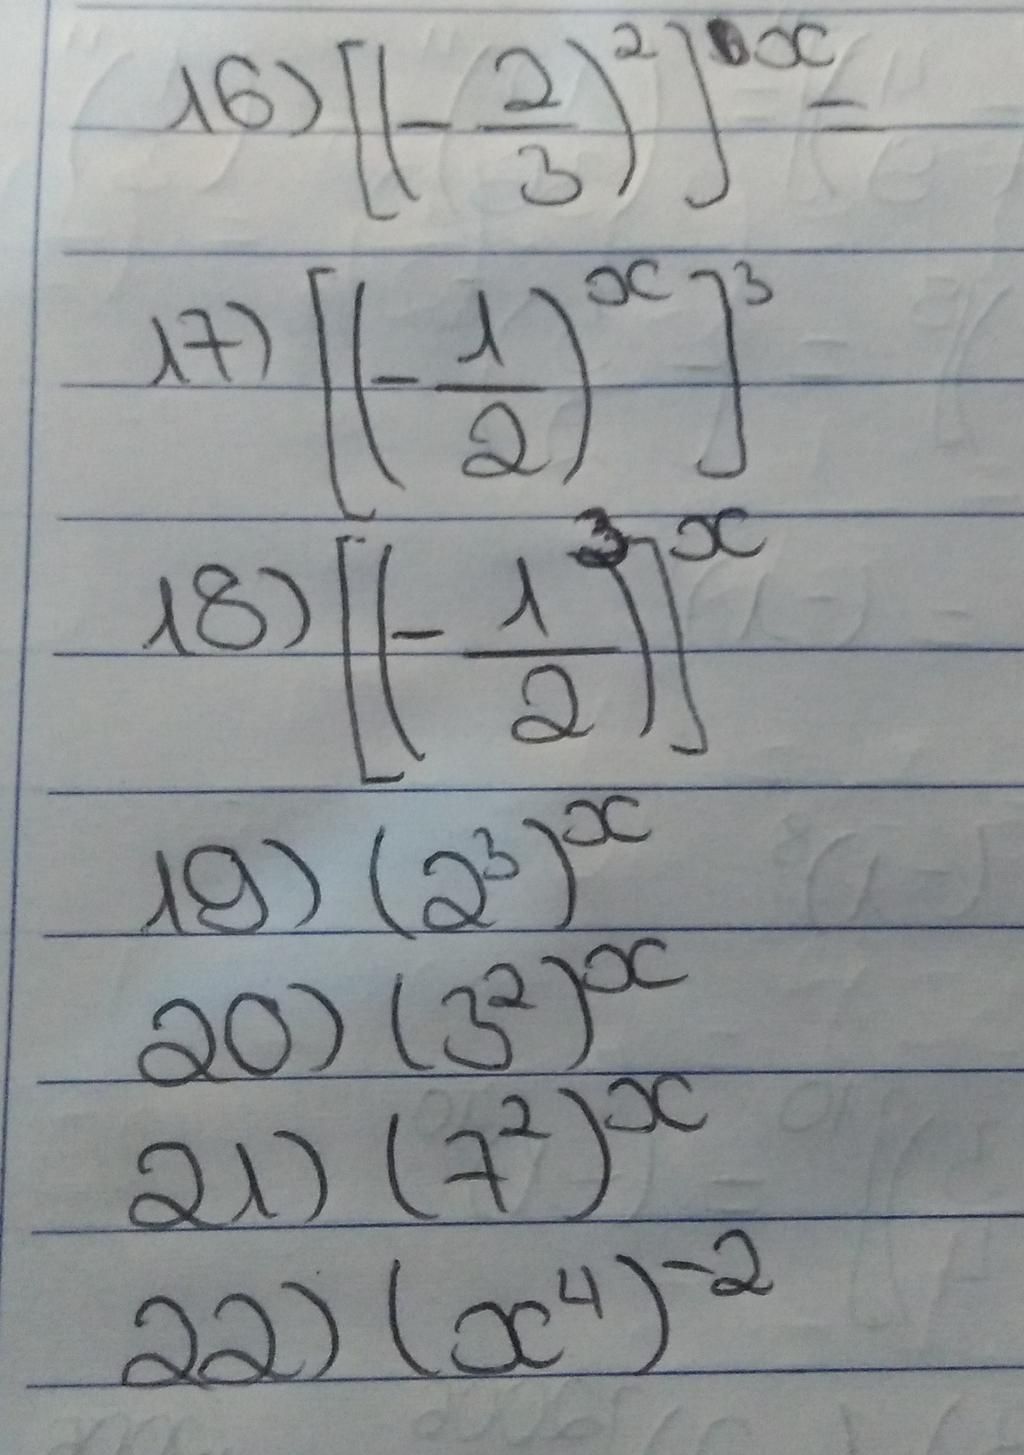 16) [(-2/3)^2]^x =
17) [(-1/2)^x]^3
18) [(-1^3/2)]^x
19) (2^3)^x
20) (3^2)^x
21) (7^2)^x
22) (x^4)^-2